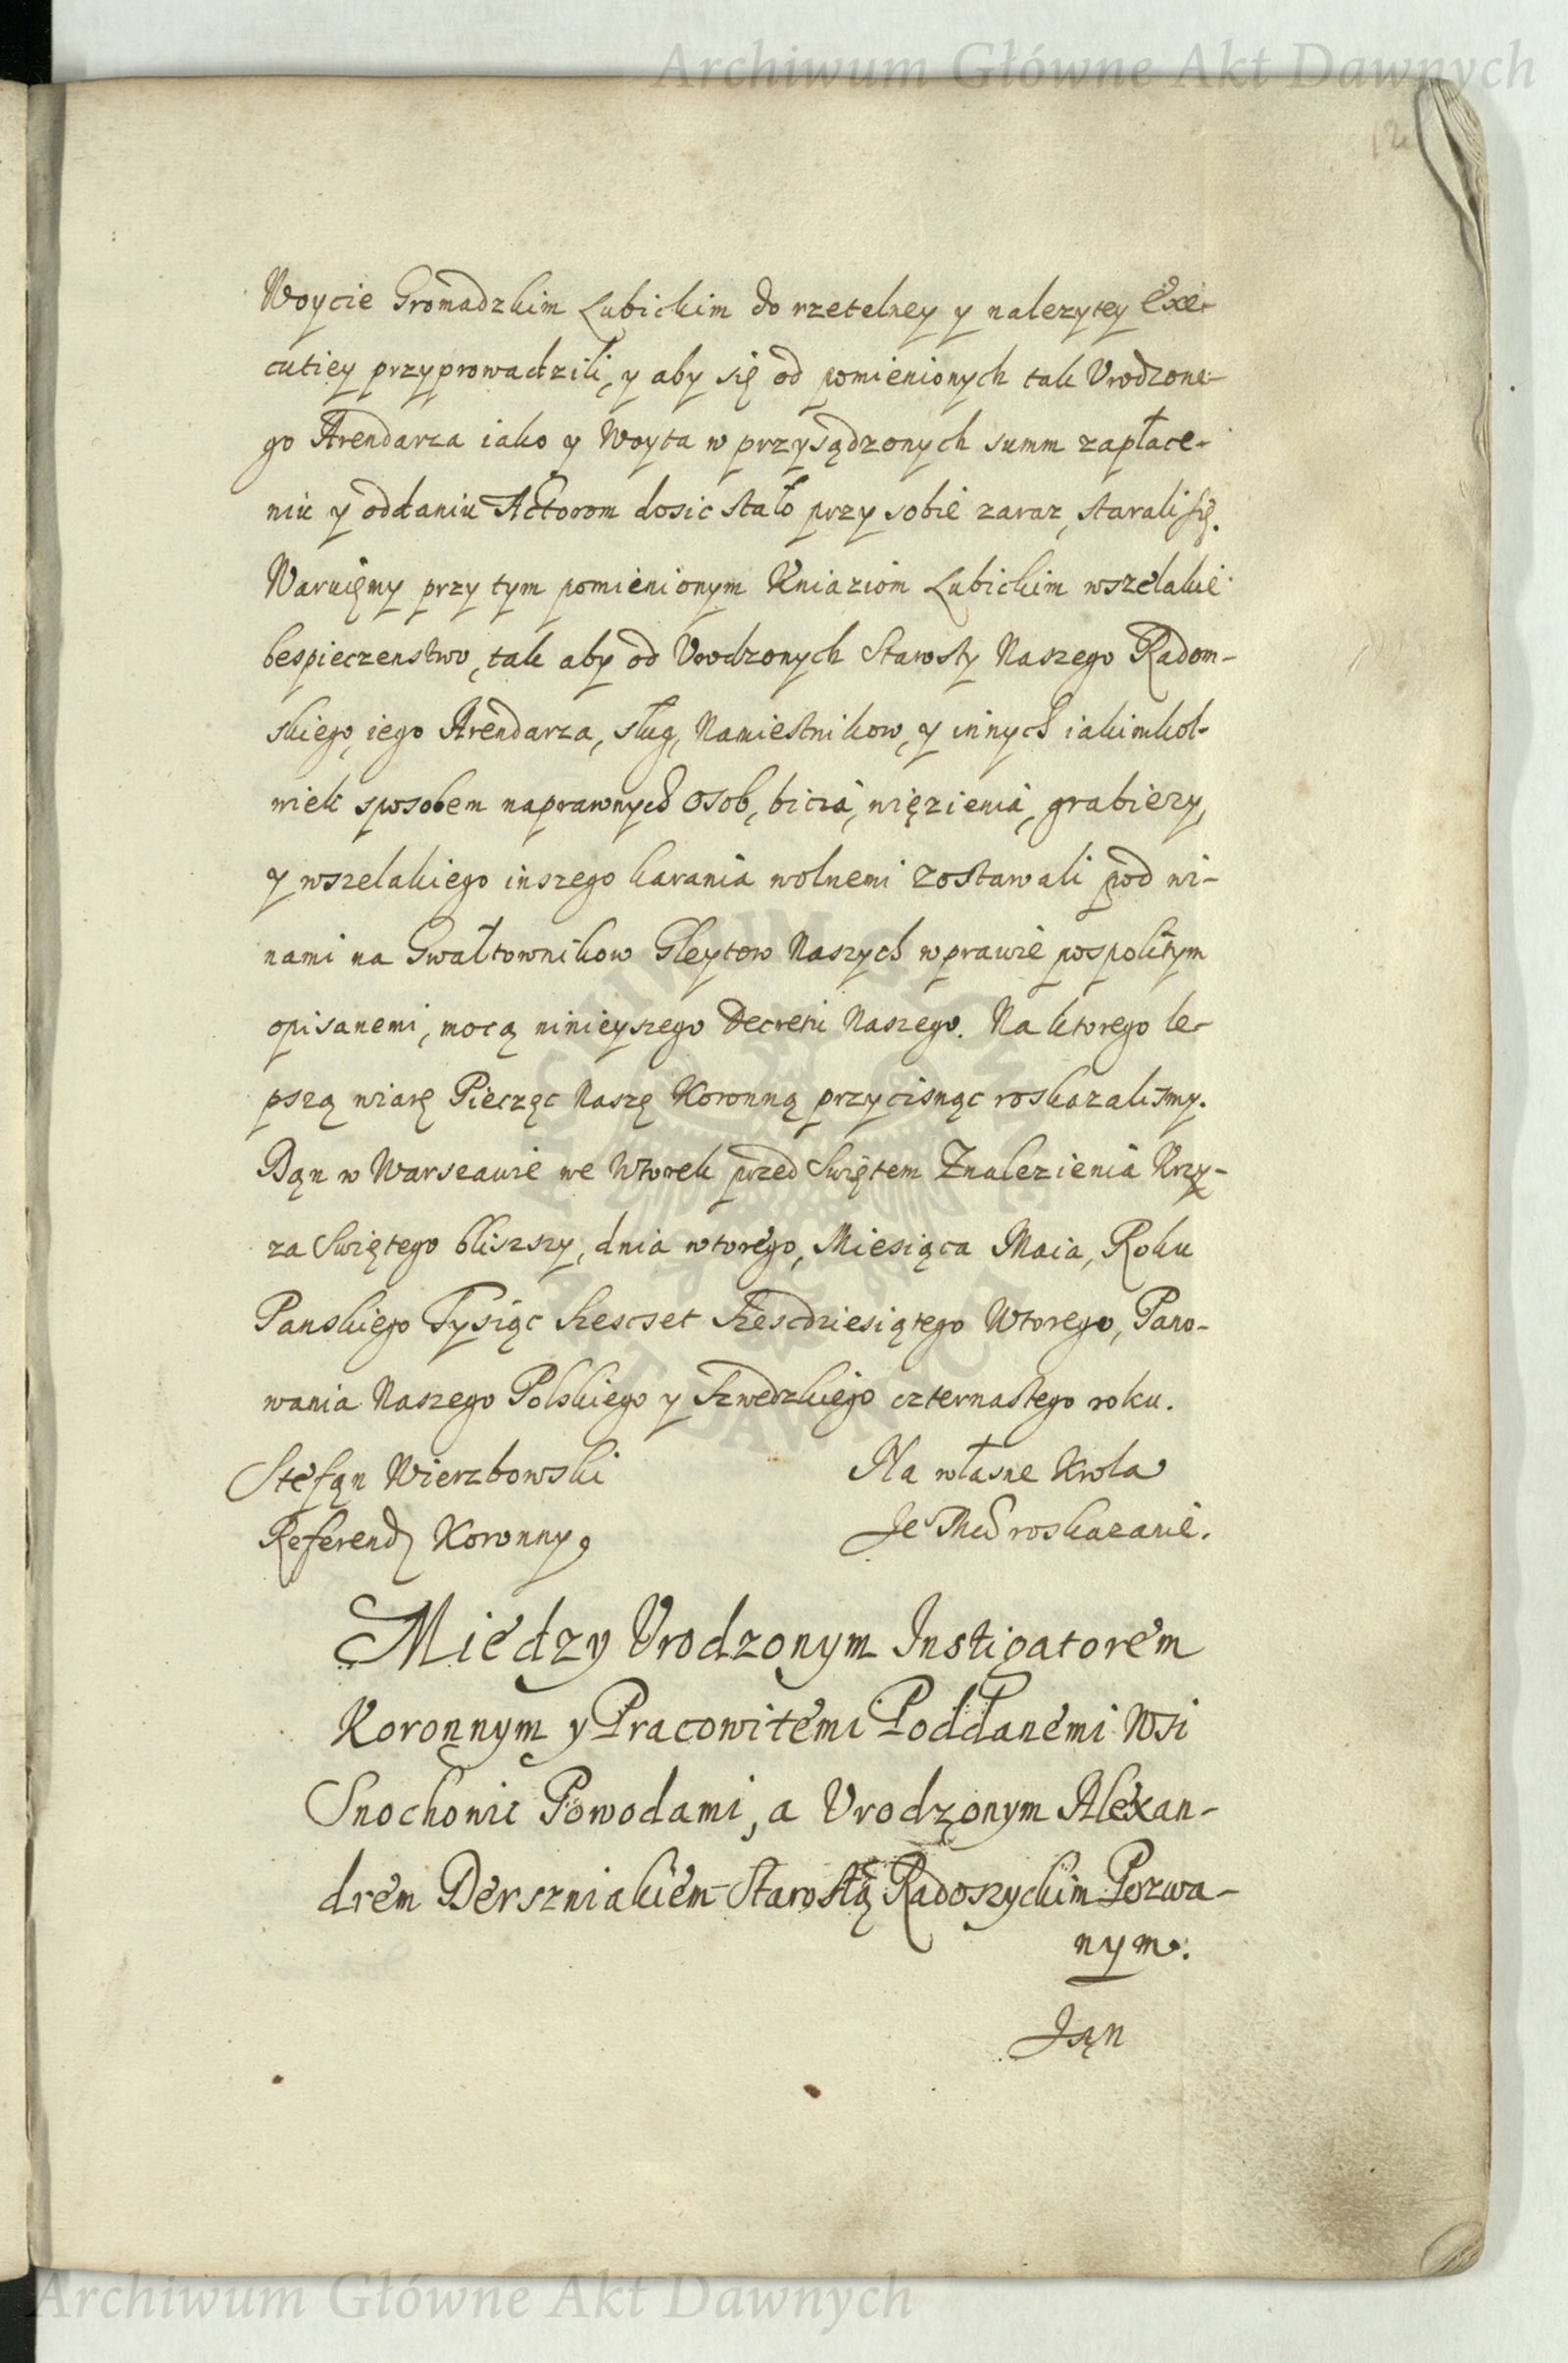 Archiwum Główne Akt Dawnych
12
Woycie Gromadzkim Lubickim do rzetelney y nalezytey Exe-
cutiey przyprowadzili, y aby się od pomienionych tak Vrodzone-
go Arendarza iako y Woyta w przysądzonych summ zapłace-
niu y oddaniu Actorom dosic stało przy sobie zaraz, starali się.
Waruięmy przy tym pomienionym Kniaziom Lubickim wszelakie
bespieczenstwo, tak aby od Vrodzonych Starosty Naszego Radom-
skiego, iego Arendarza, sług, Namiestnikow, y innych iakimkol-
wiek sposobem naprawnych osob, bicia, więzienia, grabiezy,
y wszelakiego inszego karania wolnemi zostawali pod wi-
nami na Gwałtownikow Gleytow Naszych w prawie pospolitym
opisanemi, mocą ninieyszego Decretu Naszego. Na ktorego le-
pszą wiarę Pieczęc Naszę Koronną przycisnąc roskazalismy.
Dąn w Warszawie we Wtorek przed Swiętem Znalezienia Krzy-
za Swiętego bliszszy, dnia wtorego, Miesiąca Maia, Roku
Panskiego Tysiąc Szescset Szescdziesiątego Wtorego, Pano-
wania Naszego Polskiego y Szwedzkiego czternastego roku.
Stefąn Wierzbowski Na własne Krola
Referend Koronny Je Mci roskazanie.
Między Vrodzonym Instigatorem
Koronnym y Pracowitemi Poddanemi Wsi
Snochowic Powodami, a Vrodzonym Alexan-
drem Derszniakiem Starostą Radoszyckim Pozwa-
nym.
Ją̨n
Archiwum Główne Akt Dawnych